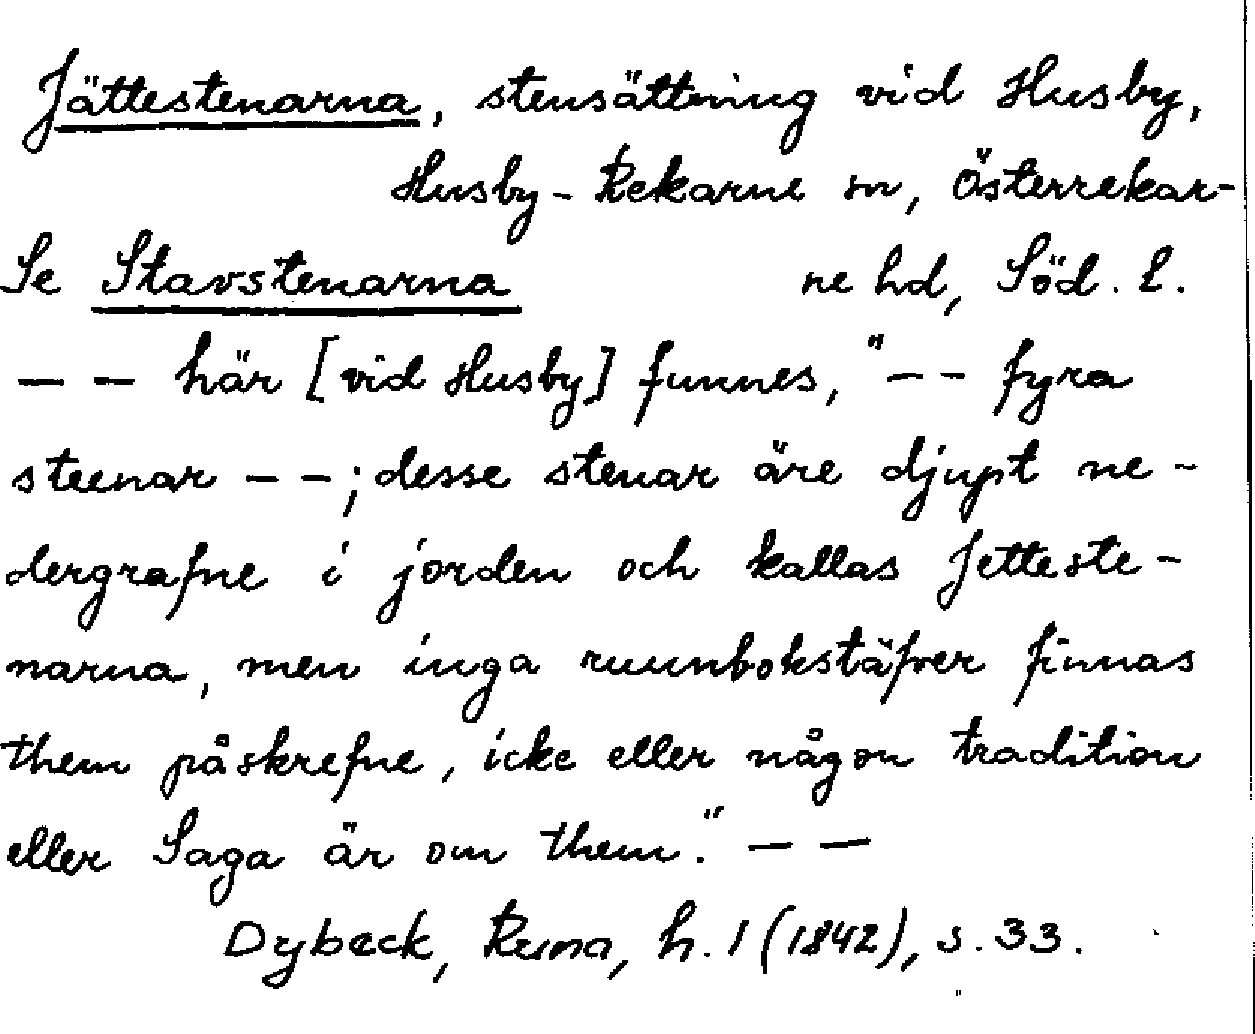 Jättestenarna, stensättning vid Husby,
Husby-Rekarne sn, Österrekar-
Se Stavstenarna ne hd, Söd. l.
— — här [vid Husby] funnes, "— — fyra
steenar — —; desse stenar äre djupt ne-
dergrafne i jorden och kallas Jetteste-
narna, men inga ruunbokstäfver finnas
them påskrefne, icke eller någon tradition
eller Saga är om them." — —
Dybeck, Runa, h. 1 (1842), s. 33.